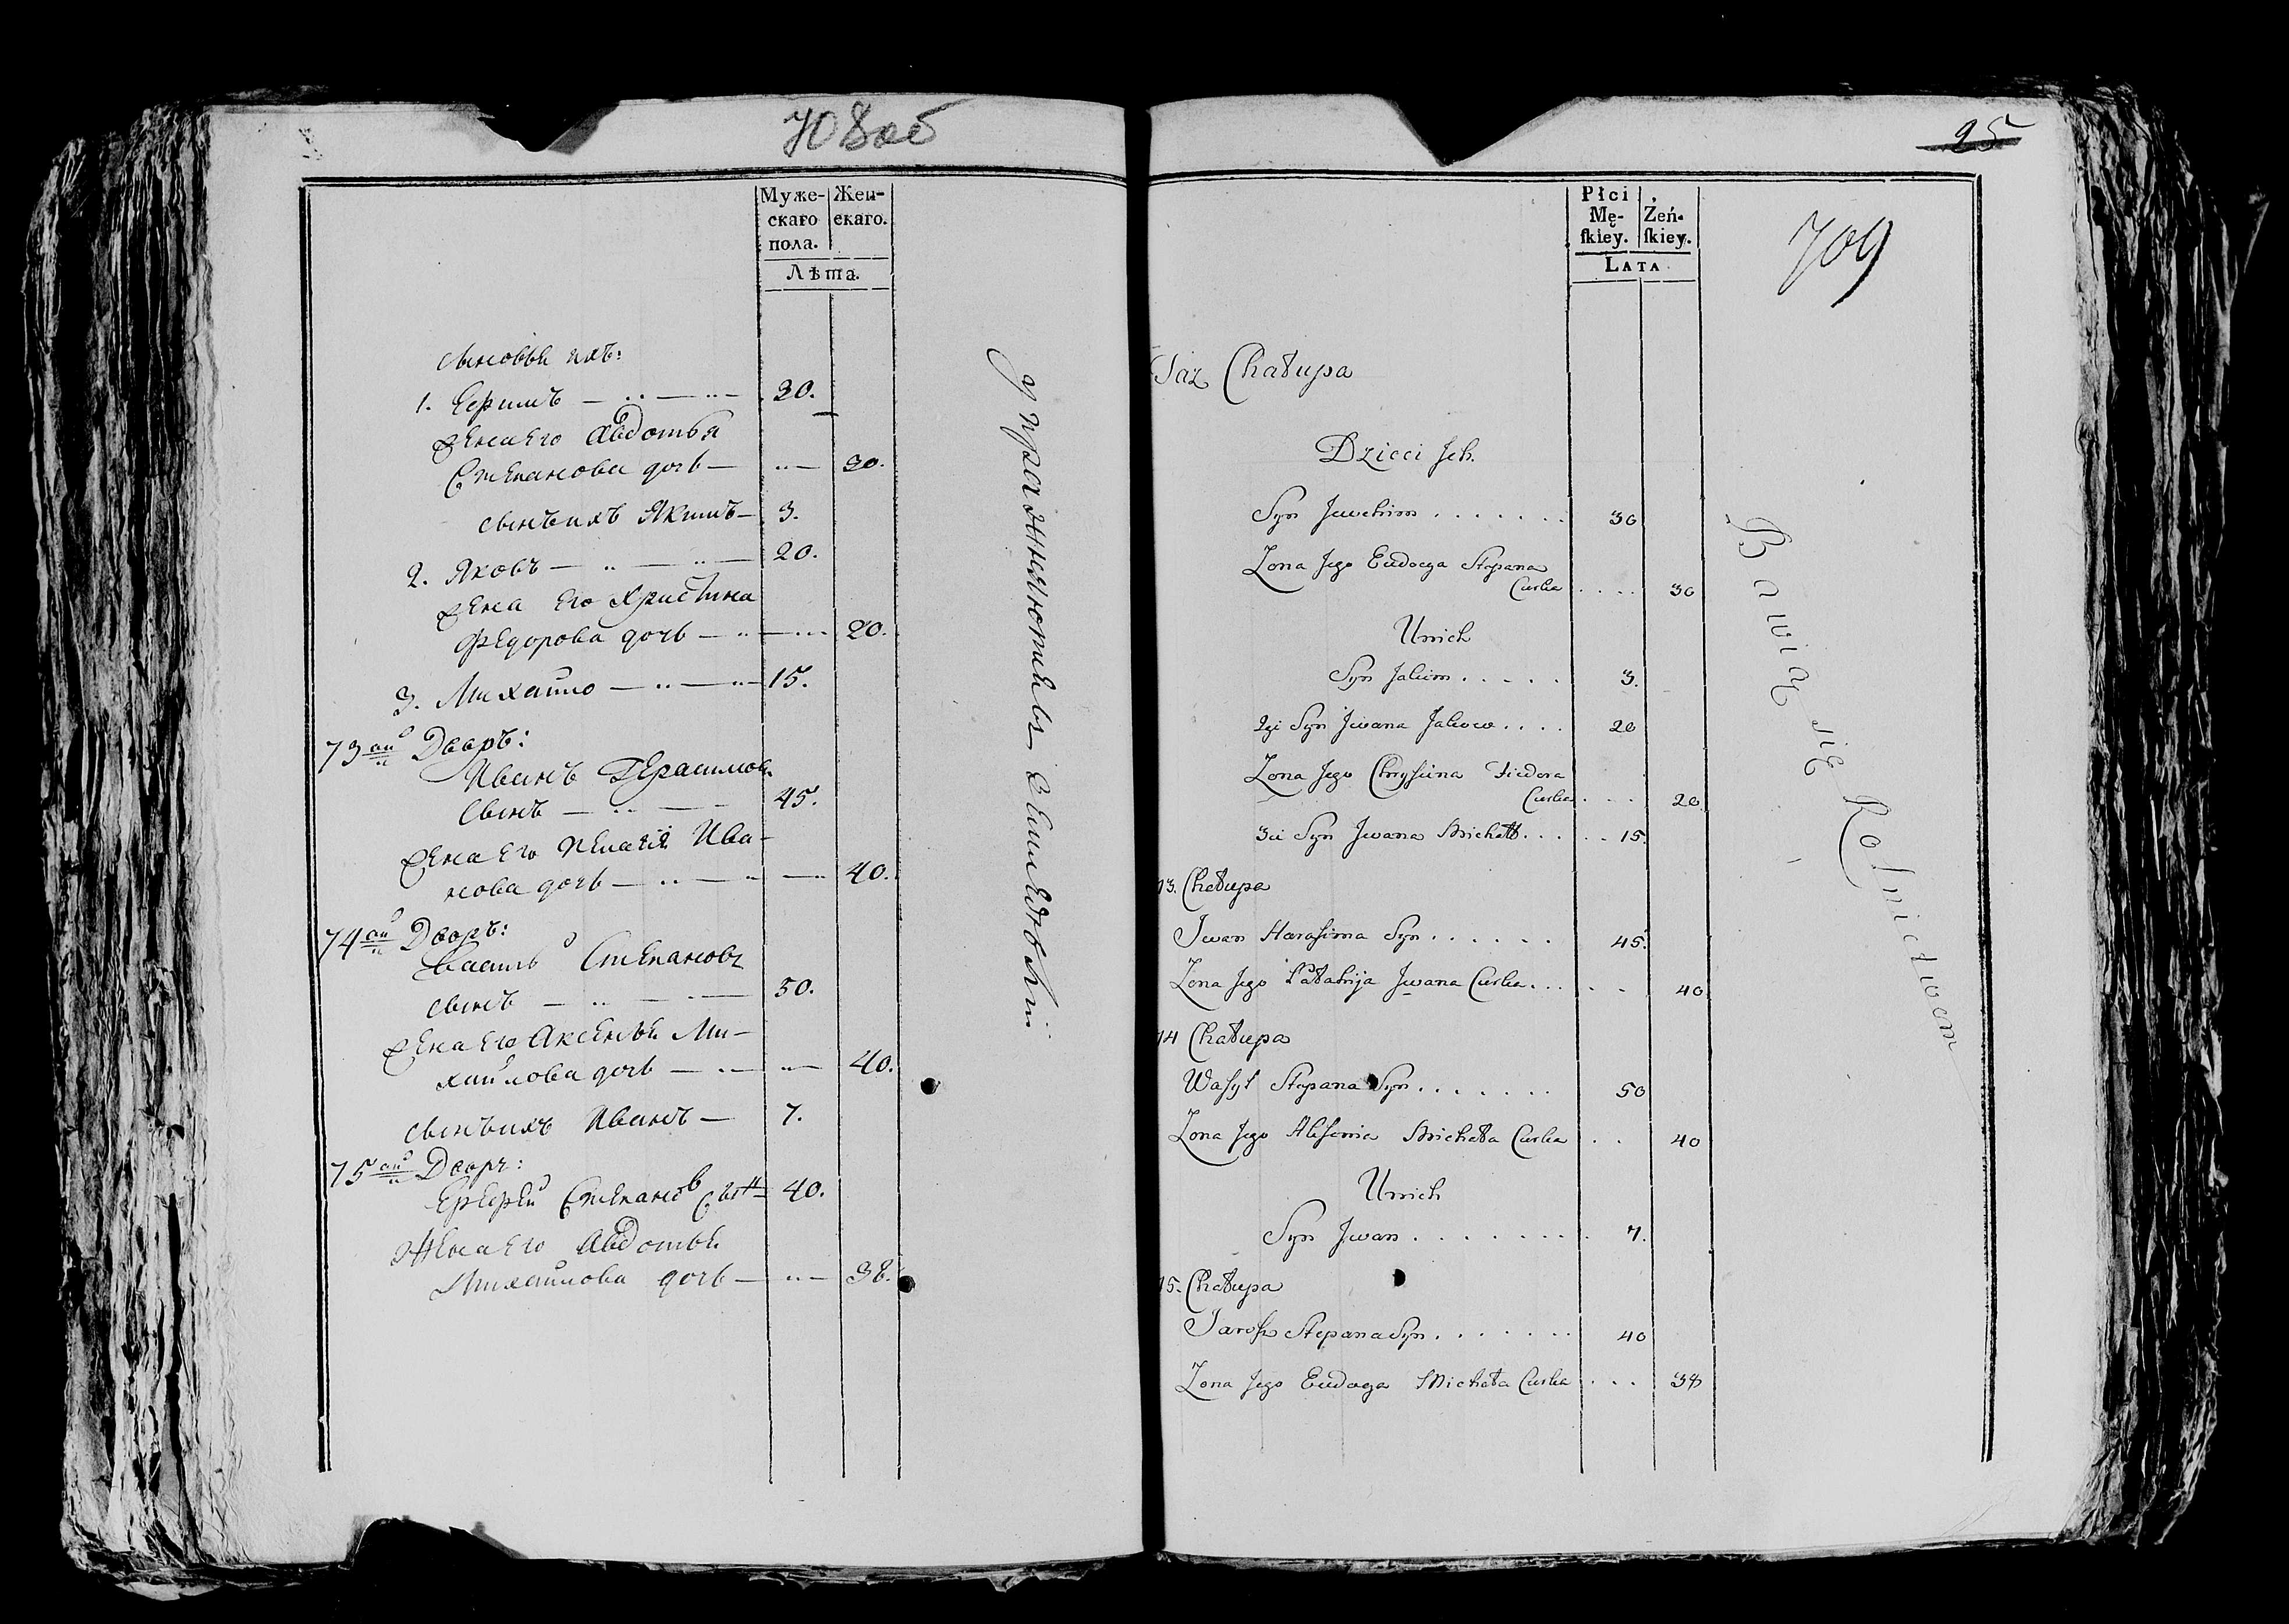 708об
Муже- Жен-
скаго скаго.
пола.
Лѣта.
сыновья ихъ:
1. Ефимъ — 30.
жена его Авдотья
Степанова дочь — 30.
сынъ ихъ Якимъ — 3.
2. Яковъ — 20.
жена его Христина
Федорова дочь — 20.
3. Михайло — 15.
73ой Дворъ:
Иванъ Герасимовъ
сынъ — 45.
жена его Пелагія Ива-
нова дочь — 40.
74ой Дворъ:
Василь Степановъ
сынъ — 50.
жена его Аксенья Ми-
хайлова дочь — 40.
сынъ ихъ Иванъ — 7.
75ой Дворъ:
Степановъ сынъ 40.
Жена его Авдотья
Михайлова дочь — 38.
упражняются въ земледѣліи
25
709
Płci
Mę- Żeń-
skiey. skiey.
LATA
Taż Chałupa
Dzieci Ich.
Syn Juchim . . . . . . . 30
Zona Jego Eudocya Stepana
Curka . . . . 30
Unich
Syn Jakim . . . . . 3.
2gi Syn Jwana Jakow . . . . 20
Zona Jego Chrystina Fiedora
Curka . . . 20
3ci Syn Jwana Michał . . . . . 15.
73. Chałupa
Jwan Harasima Syn . . . . . . 45.
Zona Jego Pałahija Jwana Curka . . . . . 40
74 Chałupa
Wasyl Stepana Syn . . . . . . . 50
Zona Jego Aksenia Michała Curka . . 40
Unich
Syn Jwan . . . . . . . . . 7.
75. Chałupa
Stepana Syn . . . . . . . 40
Zona Jego Eudocya Michała Curka . . . 38
Bawią się Rolnictwem